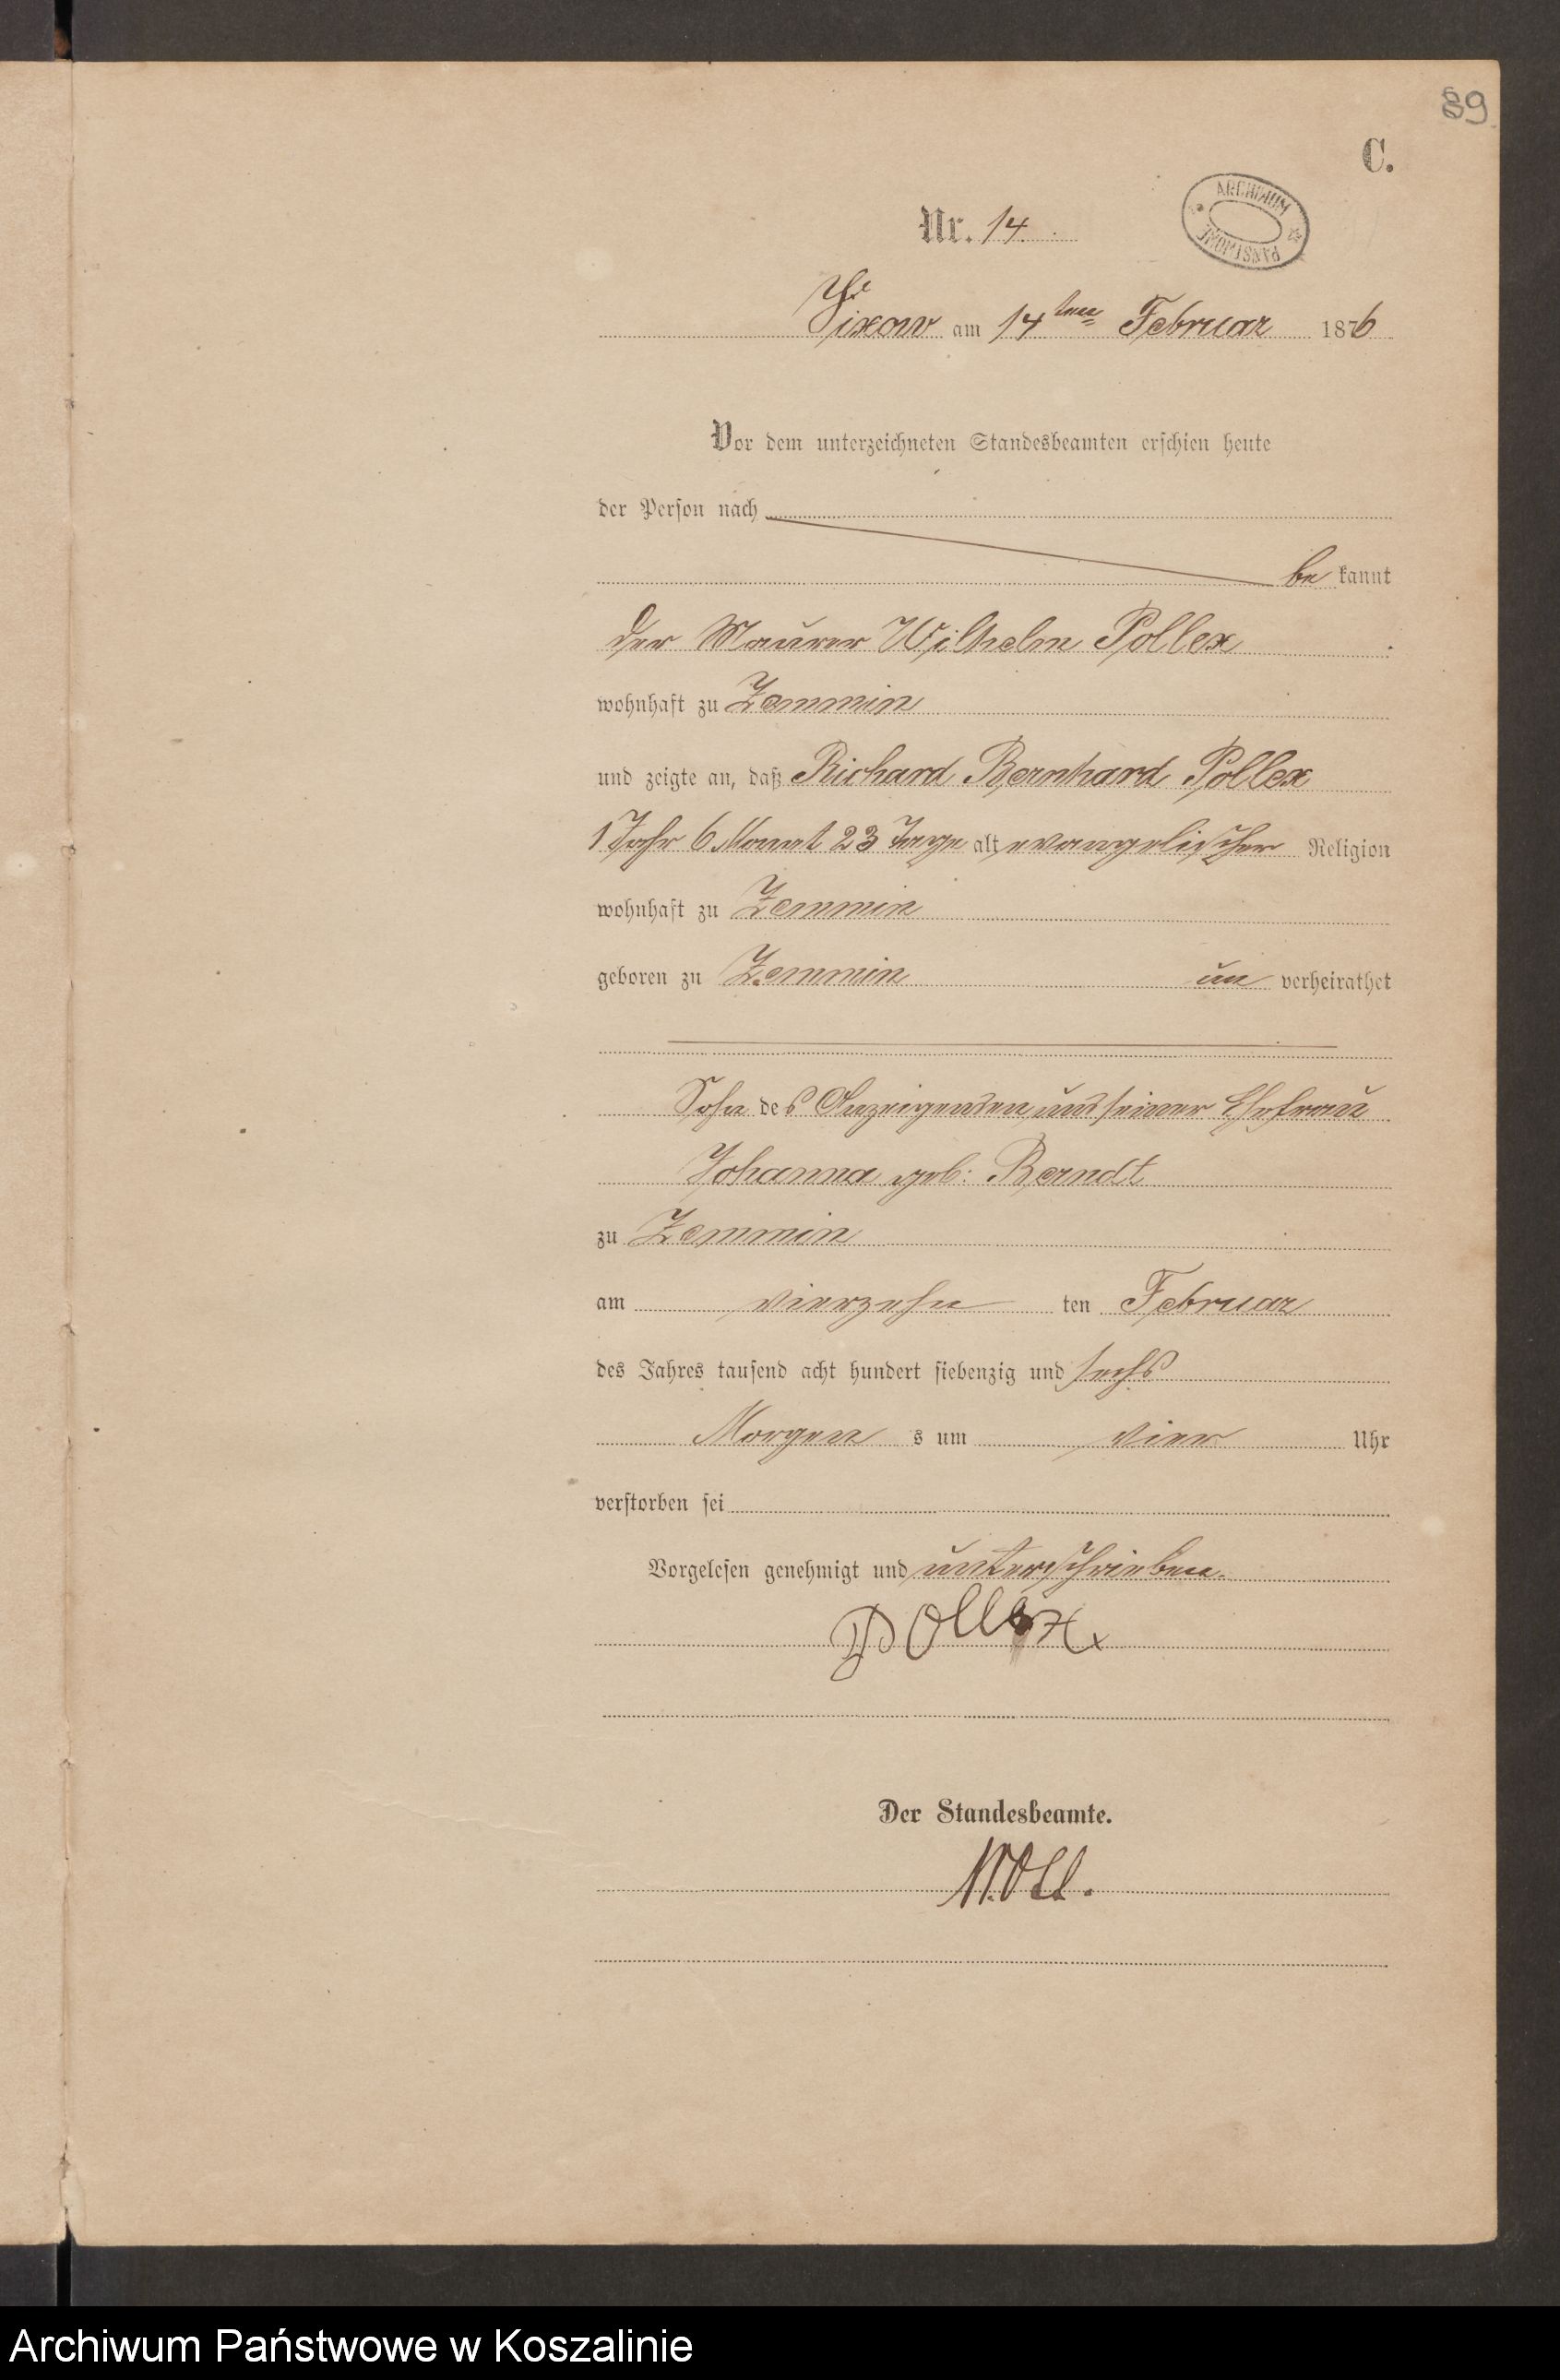 89
C.
ARCHIWUM PAŃSTWOWE
Nr. 14.
Vixow am 14ten Februar 1876
Vor dem unterzeichneten Standesbeamten erschien heute
der Person nach
be kannt
der Maurer Wilhelm Pollex
wohnhaft zu Zemmin
und zeigte an, daß Richard Bernhard Pollex
1 Jahr 6 Monat 23 Tage alt, evangelischer Religion
wohnhaft zu Zemmin
geboren zu Zemmin un verheirathet
Sohn des Anzeigenden und seiner Ehefrau
Johanna geb: Berndt
zu Zemmin
am vierzehn ten Februar
des Jahres tausend acht hundert siebenzig und sechs
Morgen s um vier Uhr
verstorben sei
Vorgelesen genehmigt und unterschrieben.
Pollex
Der Standesbeamte.
Noll.
Archiwum Państwowe w Koszalinie